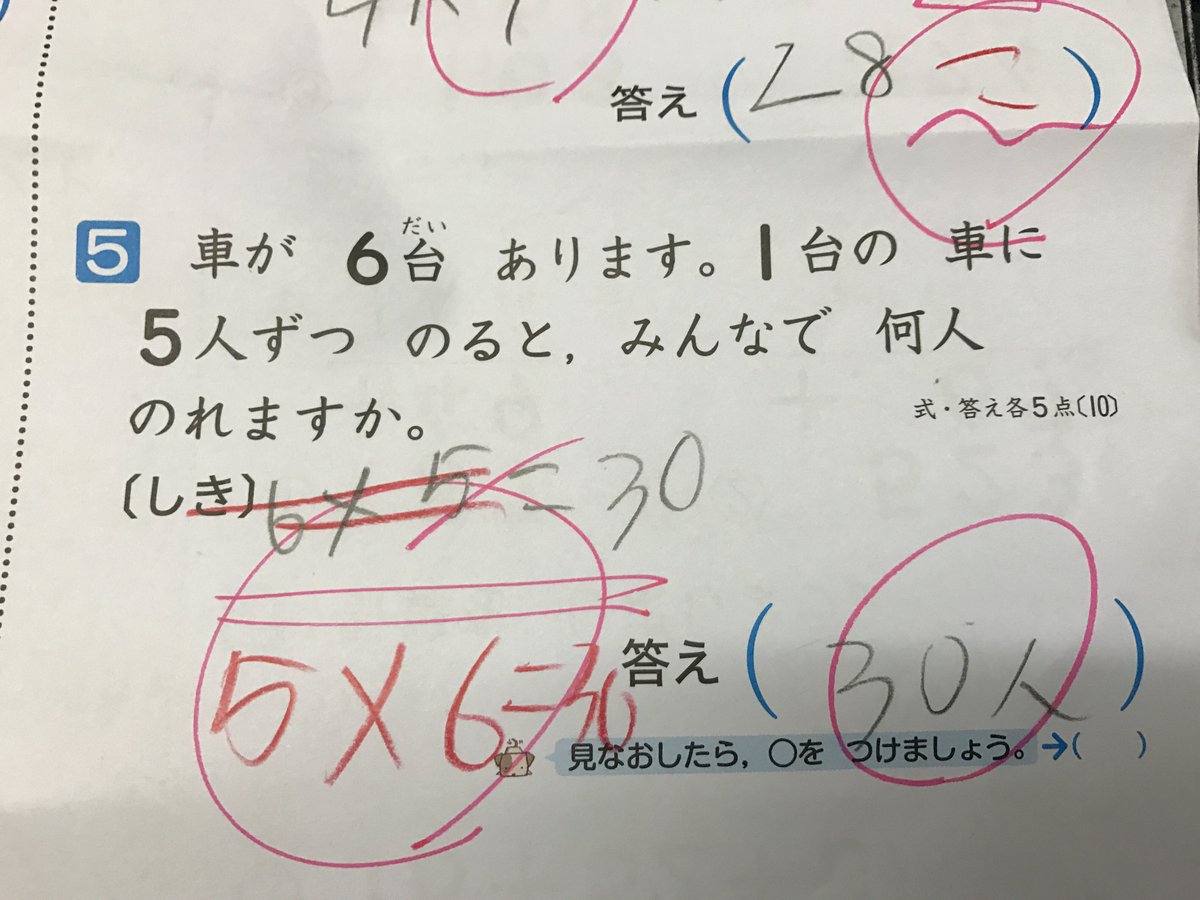 答え ( 28 こ )
5 車が 6台 あります。1台の 車に
だい
5人ずつ のると, みんなで 何人
のれますか。
式・答え各5点〔10〕
(しき) 6×5=30
5×6=30
答え ( 30人 )
見なおしたら, ○を つけましょう。→( )